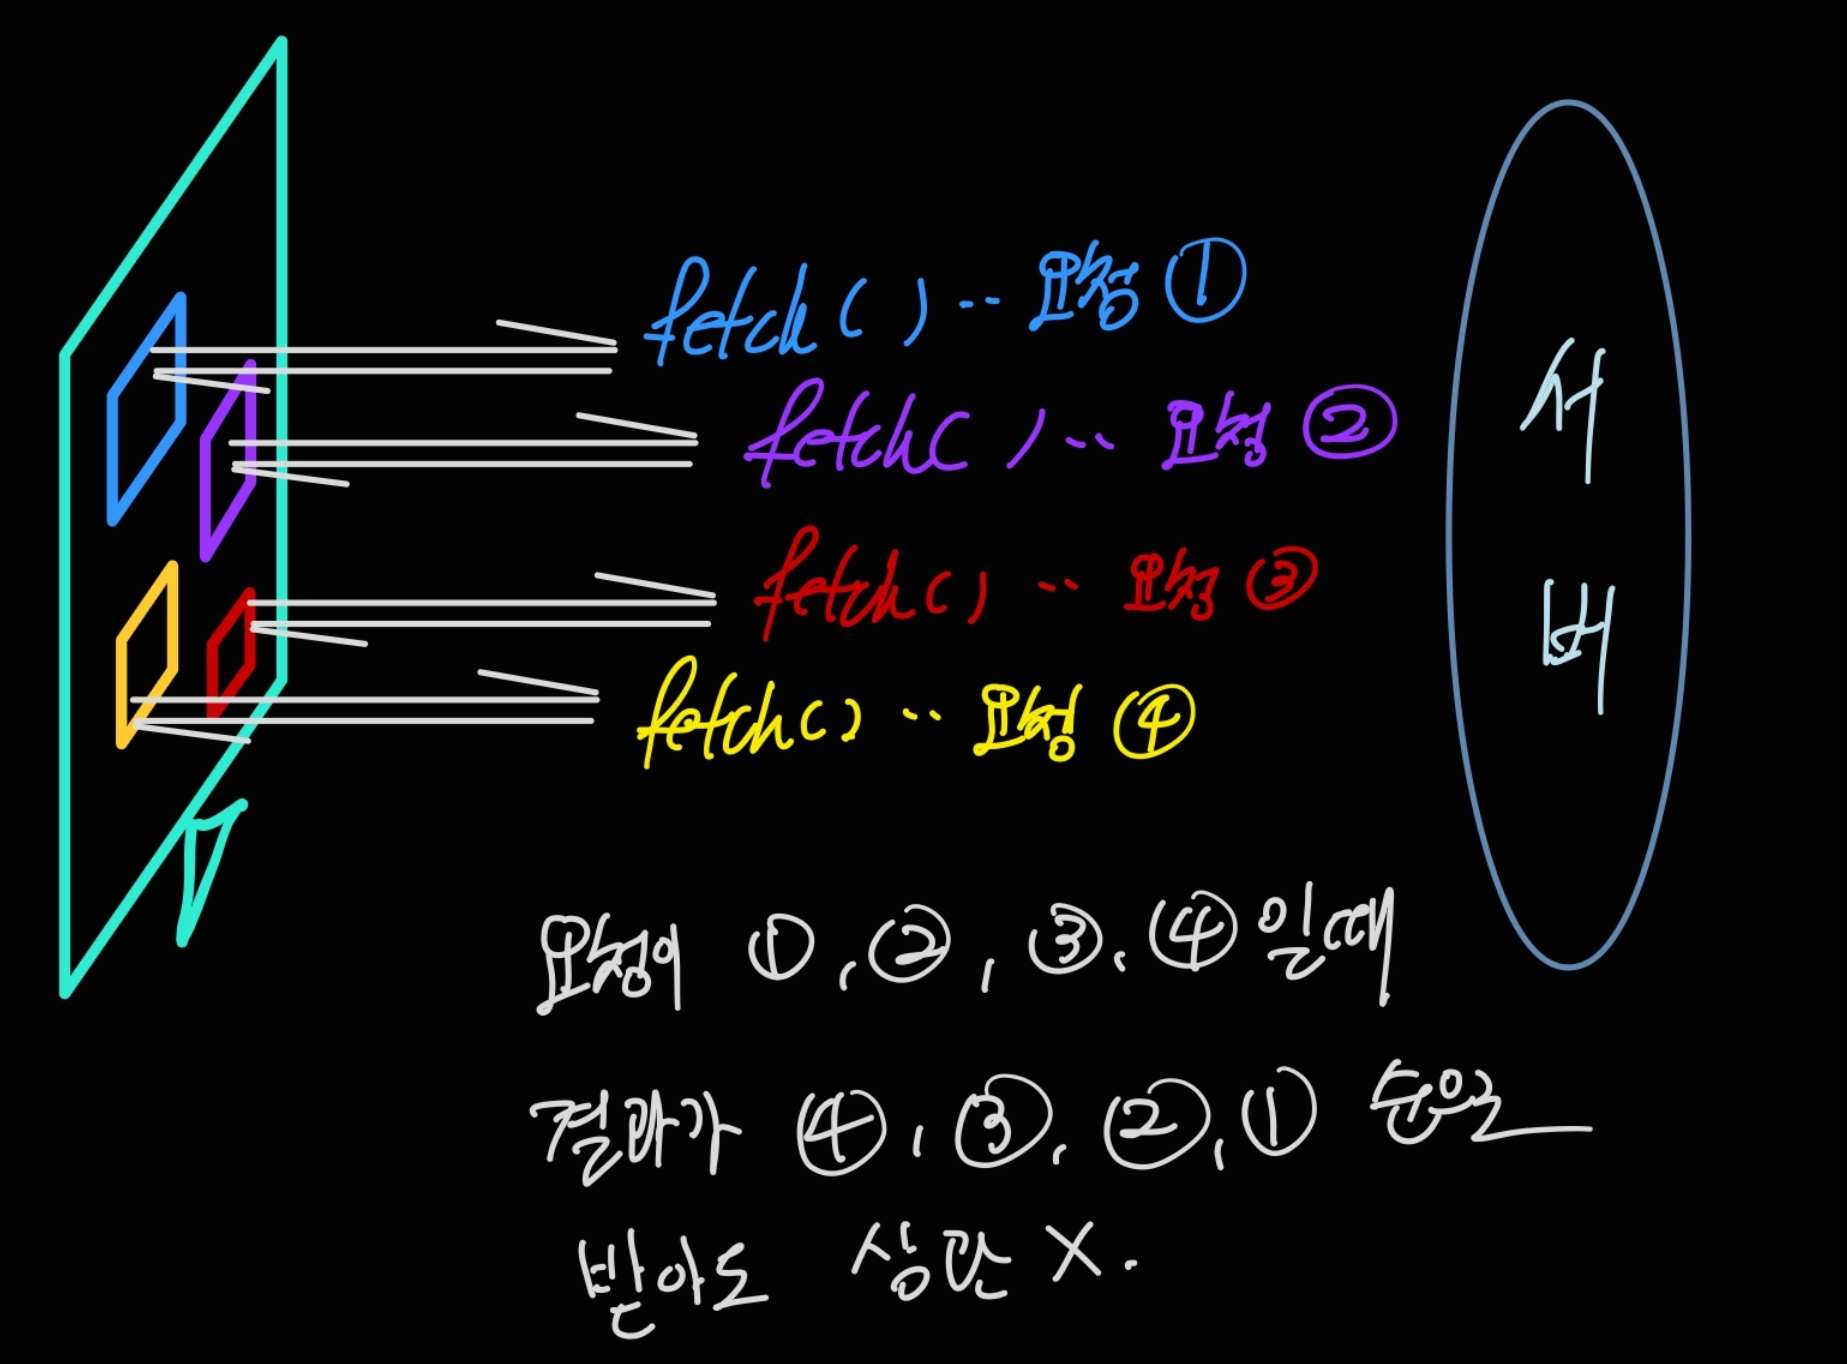 fetch( ) .. 요청 ①
fetch( ) .. 요청 ②
fetch( ) .. 요청 ③
fetch( ) .. 요청 ④
서
버
요청이 ①, ②, ③, ④ 일때
결과가 ④, ③, ②, ① 순으로
받아도 상관 X.